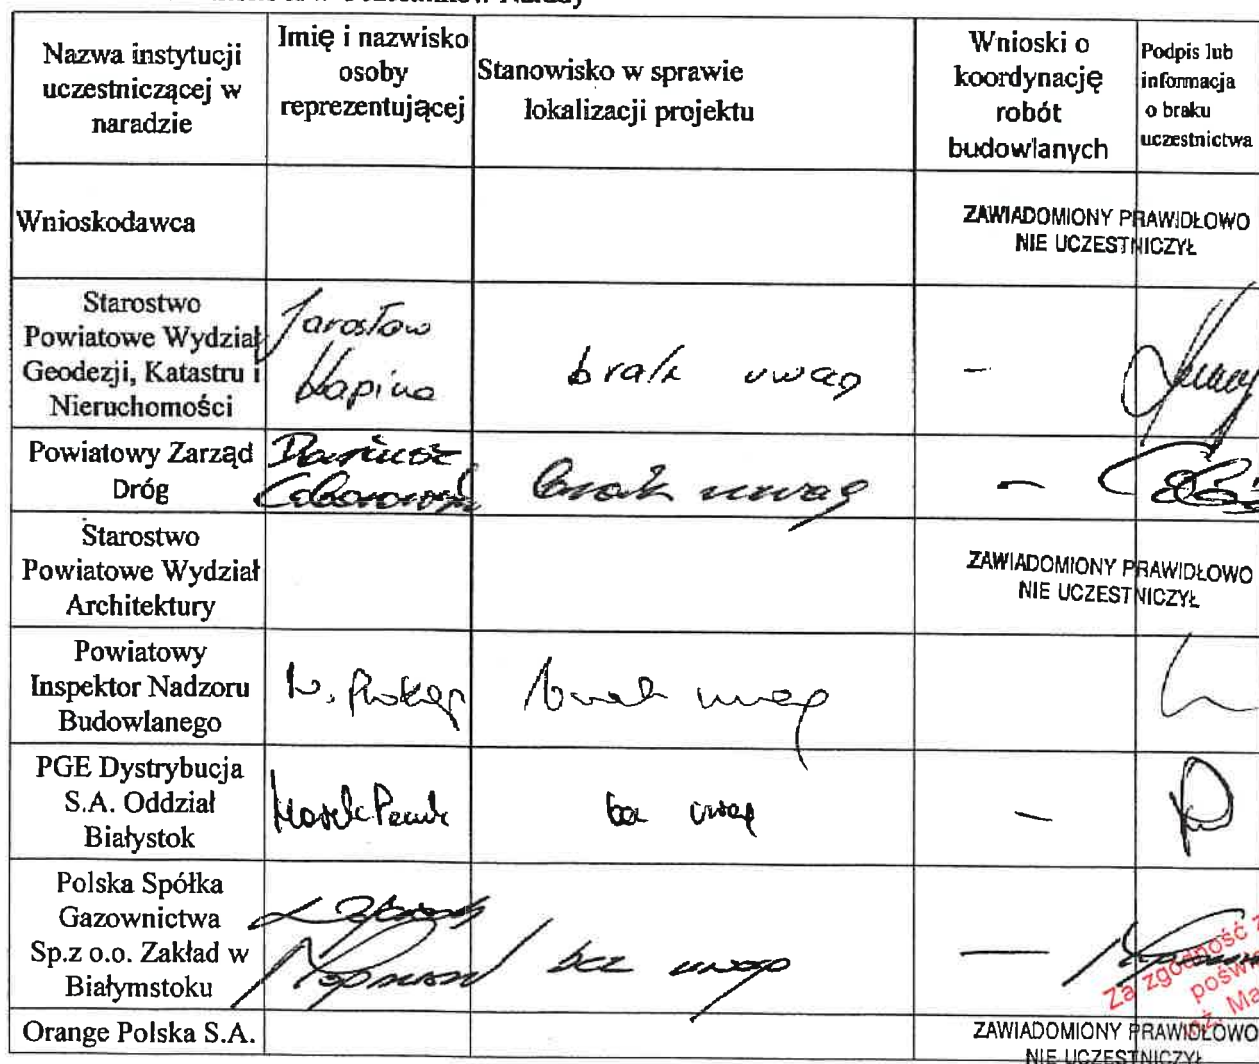 Nazwa instytucji
uczestniczącej w
naradzie
Imię i nazwisko
osoby
reprezentującej
Stanowisko w sprawie
lokalizacji projektu
Wnioski o
koordynację
robót
budowlanych
Podpis lub
informacja
o braku
uczestnictwa
Wnioskodawca
ZAWIADOMIONY PRAWIDŁOWO
NIE UCZESTNICZYŁ
Starostwo
Powiatowe Wydział
Geodezji, Katastru i
Nieruchomości
Jarosław
brak uwag
-
Powiatowy Zarząd
Dróg
Dariusz
brak uwag
-
Starostwo
Powiatowe Wydział
Architektury
ZAWIADOMIONY PRAWIDŁOWO
NIE UCZESTNICZYŁ
Powiatowy
Inspektor Nadzoru
Budowlanego
brak uwag
PGE Dystrybucja
S.A. Oddział
Białystok
Marek
bez uwag
-
Polska Spółka
Gazownictwa
Sp.z o.o. Zakład w
Białymstoku
bez uwag
-
Za zgodność z
Orange Polska S.A.
ZAWIADOMIONY PRAWIDŁOWO
NIE UCZESTNICZYŁ